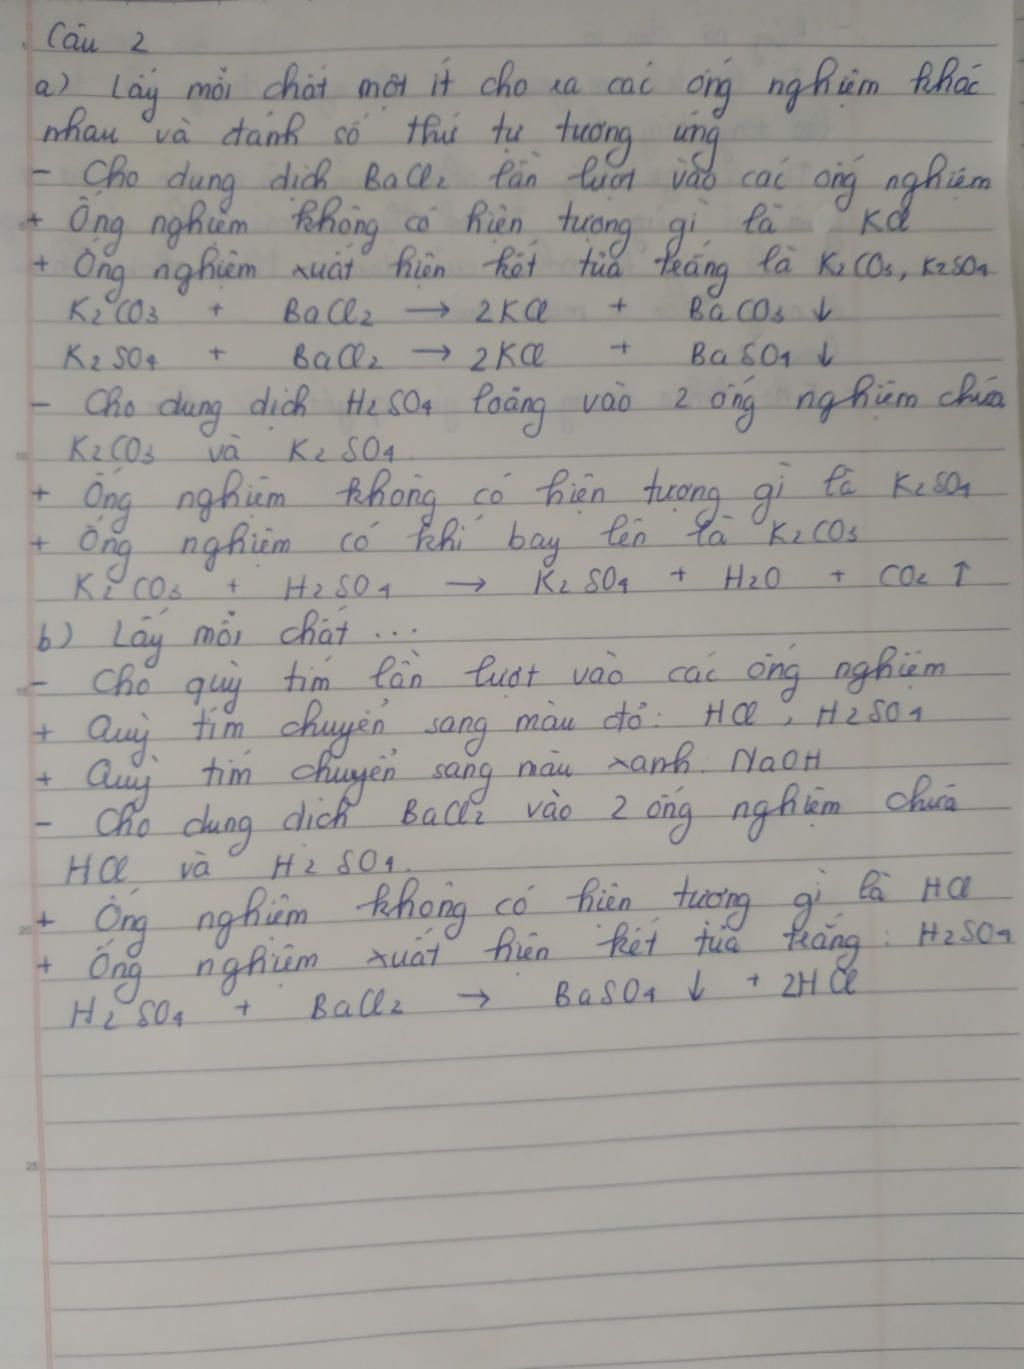 Câu 2
a) Lấy mỗi chất một ít cho ra các ống nghiệm khác
nhau và đánh số thứ tự tương ứng
- Cho dung dịch BaCl₂ lần lượt vào các ống nghiệm
+ Ống nghiệm không có hiện tượng gì là KCl
+ Ống nghiệm xuất hiện kết tủa trắng là K₂CO₃, K₂SO₄
K₂CO₃ + BaCl₂ → 2KCl + BaCO₃ ↓
K₂SO₄ + BaCl₂ → 2KCl + BaSO₄ ↓
- Cho dung dịch H₂SO₄ loãng vào 2 ống nghiệm chứa
K₂CO₃ và K₂SO₄
+ Ống nghiệm không có hiện tượng gì là K₂SO₄
+ Ống nghiệm có khí bay lên là K₂CO₃
K₂CO₃ + H₂SO₄ → K₂SO₄ + H₂O + CO₂ ↑
b) Lấy mỗi chất ...
- Cho quỳ tím lần lượt vào các ống nghiệm
+ Quỳ tím chuyển sang màu đỏ: HCl, H₂SO₄
+ Quỳ tím chuyển sang màu xanh: NaOH
- Cho dung dịch BaCl₂ vào 2 ống nghiệm chứa
HCl và H₂SO₄.
+ Ống nghiệm không có hiện tượng gì là HCl
+ Ống nghiệm xuất hiện kết tủa trắng: H₂SO₄
H₂SO₄ + BaCl₂ → BaSO₄ ↓ + 2HCl
20
25